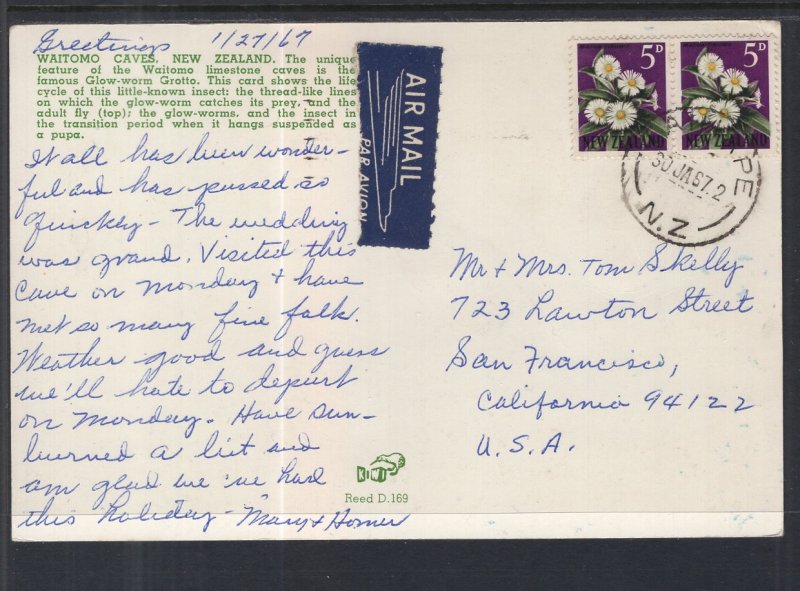 Greetings 1/27/67
WAITOMO CAVES, NEW ZEALAND. The unique
feature of the Waitomo limestone caves is the
famous Glow-worm Grotto. This card shows the life
cycle of this little-known insect; the thread-like lines
on which the glow-worm catches its prey, and the
adult fly (top); the glow-worms, and the insect in
the transition period when it hangs suspended as
a pupa.
It all has been wonder-
ful and has passed so
quickly - The wedding
was grand. Visited this
cave on Monday & have
met so many fine folk.
Weather good and guess
we'll hate to depart
on Monday. Have sun-
burned a bit and
am glad we've had
this holiday - Mary & Homer
AIR MAIL
PAR AVION
5D
NEW ZEALAND
5D
NEW ZEALAND
30 JA 67.2
N.Z
Mr & Mrs. Tom Skelly
723 Lawton Street
San Francisco,
California 94122
U.S.A.
KIWI
Reed D.169